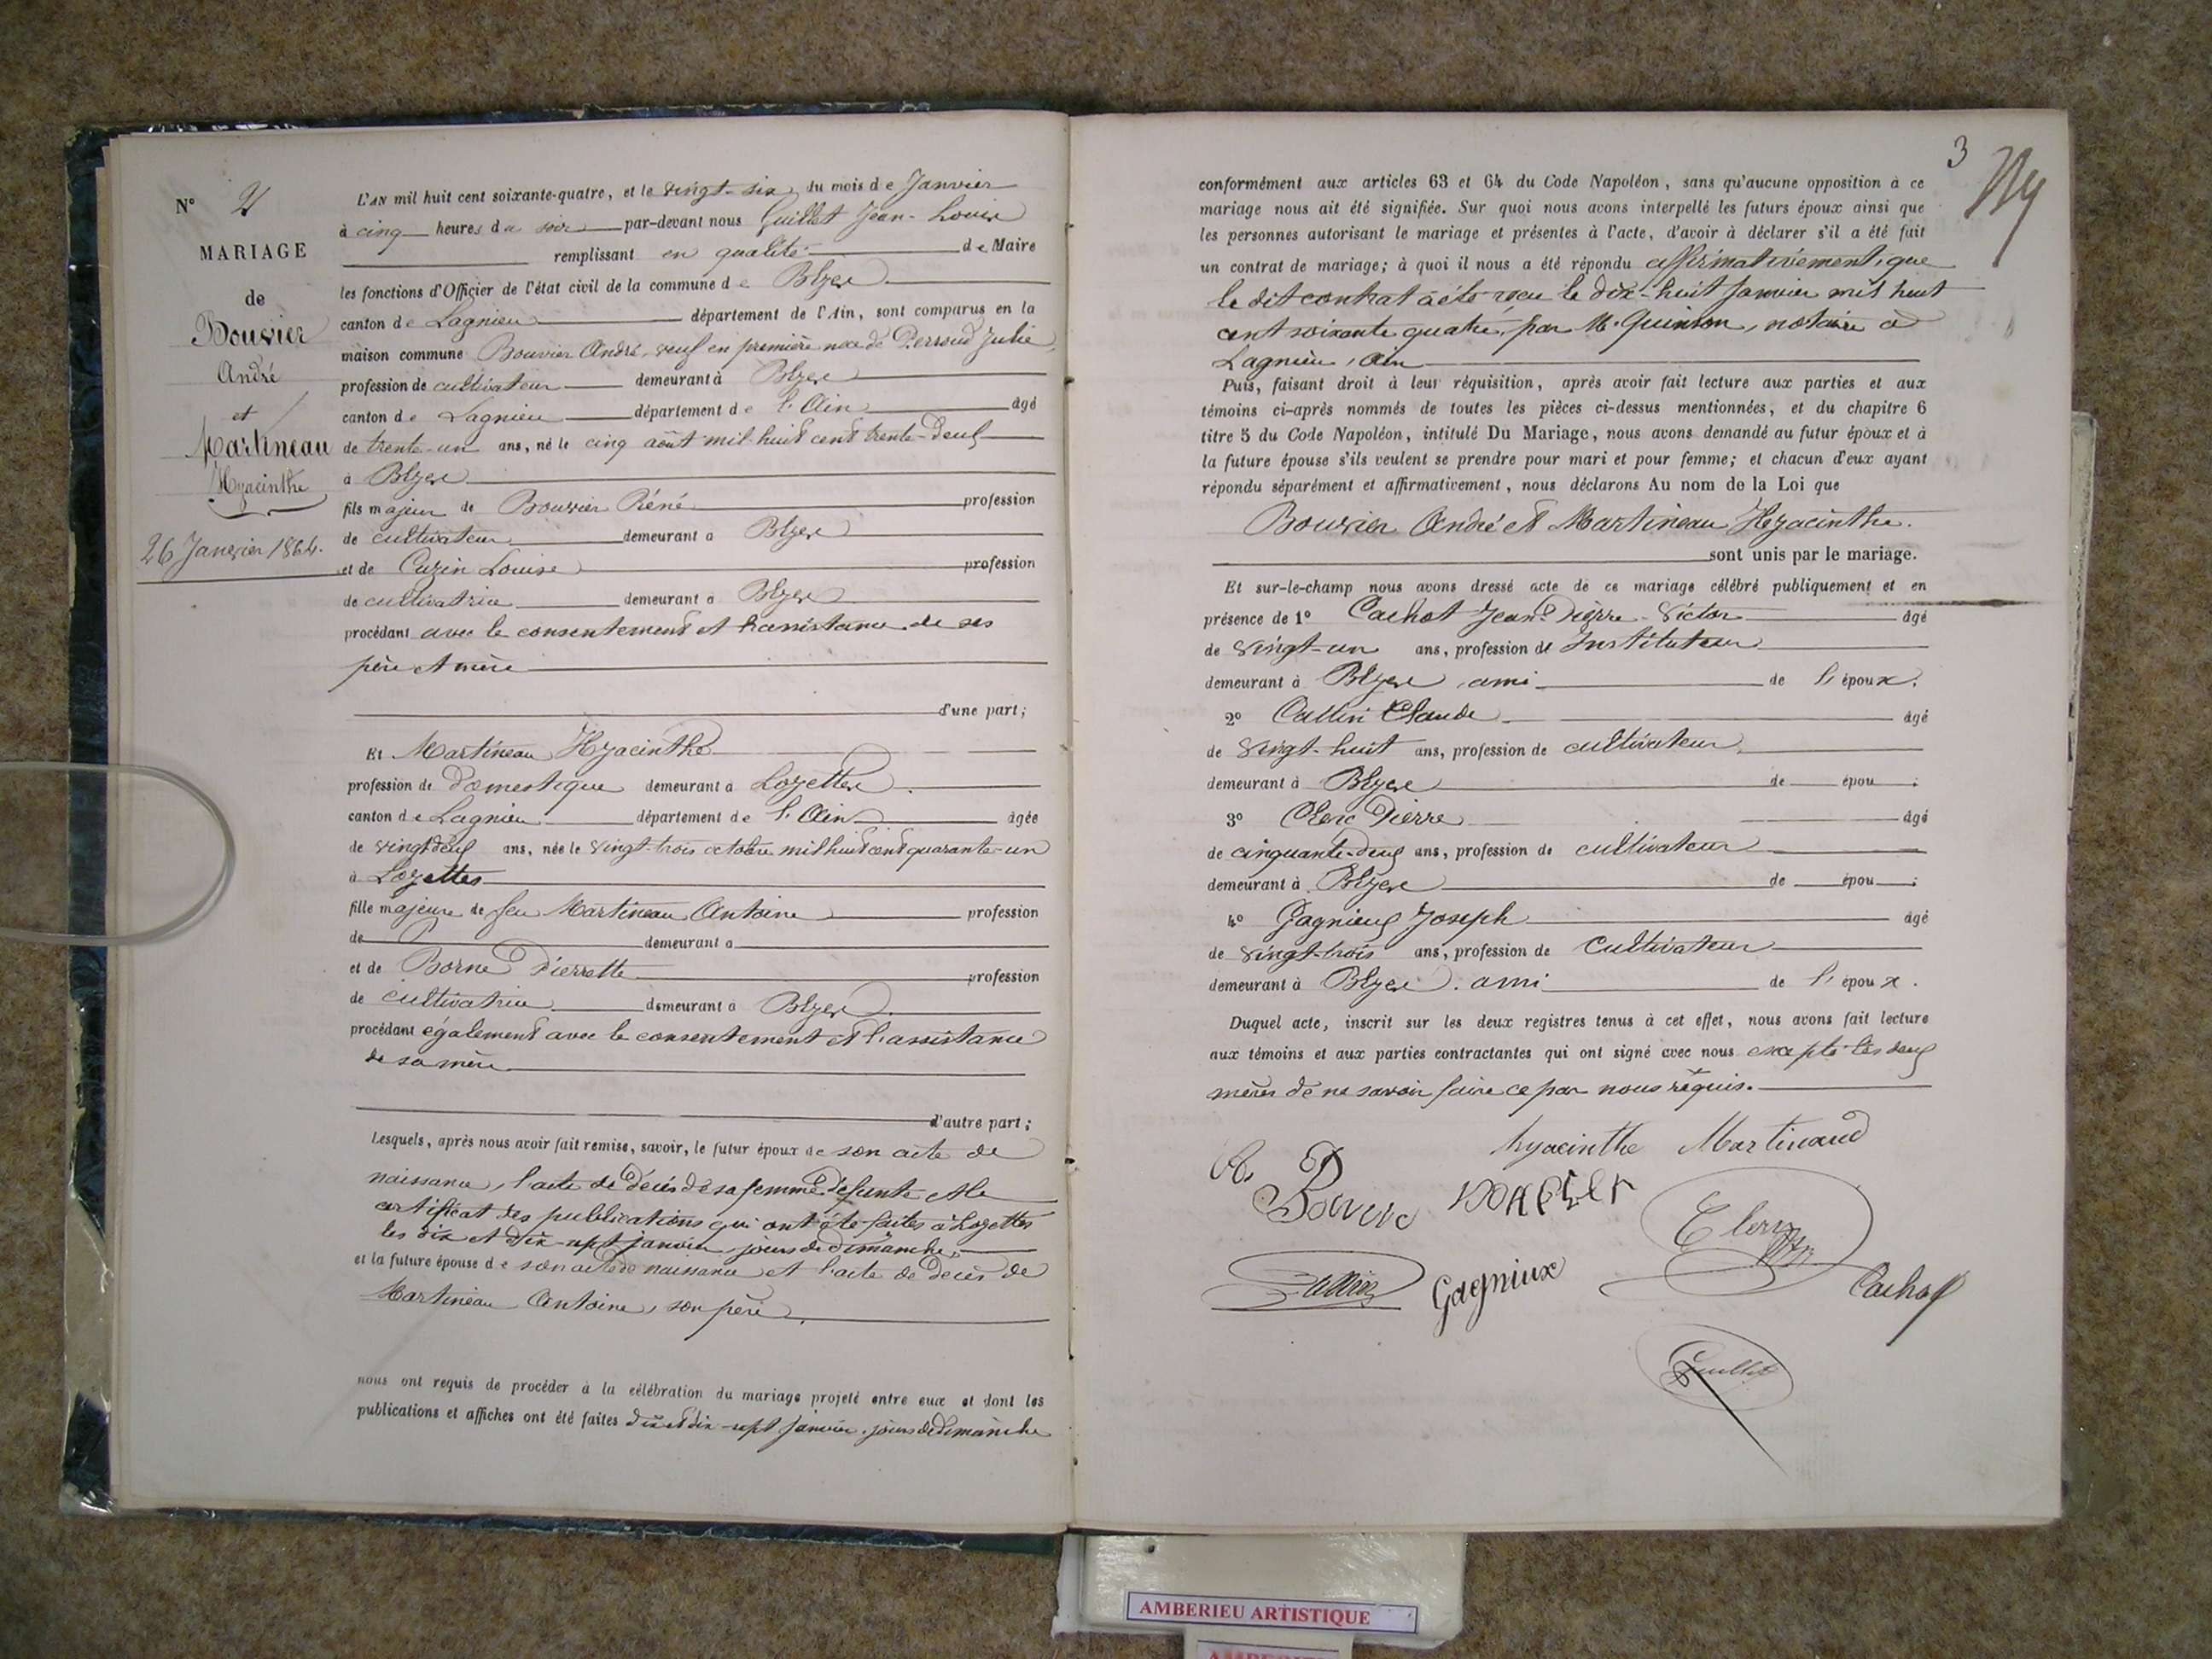 N° 2
MARIAGE
de
Bouvier
André
et
Martineau
Hyacinthe
26 Janvier 1864.
L'AN mil huit cent soixante-quatre, et le vingt-six du mois de Janvier
à cinq heures du soir par-devant nous Guillet Jean-Louis
remplissant en qualité de Maire
les fonctions d'Officier de l'état civil de la commune de Blyes
canton de Lagnieu département de l'Ain, sont comparus en la
maison commune Bouvier André, veuf en première noce de Perroud Julie
profession de cultivateur demeurant à Blyes
canton de Lagnieu département de l'Ain âgé
de trente-un ans, né le cinq août mil huit cent trente-deux
à Blyes
fils majeur de Bouvier Réné profession
de cultivateur demeurant à Blyes
et de Cuzin Louise profession
de cultivatrice demeurant à Blyes
procédant avec le consentement et l'assistance de ses
père et mère
d'une part;
Et Martineau Hyacinthe
profession de Domestique demeurant à Loyettes
canton de Lagnieu département de l'Ain âgée
de vingt deux ans, née le vingt-trois octobre mil huit cent quarante-un
à Loyettes
fille majeure de feu Martineau Antoine profession
de demeurant à
et de Borne Pierrette profession
de cultivatrice demeurant à Blyes
procédant également avec le consentement et l'assistance
de sa mère
d'autre part;
Lesquels, après nous avoir fait remise, savoir, le futur époux de son acte de
naissance, l'acte de décès de sa femme défunte et le
certificat des publications qui ont été faites à Loyettes
les dix et dix-sept janvier jours de dimanche
et la future épouse de son acte de naissance et l'acte de décès de
Martineau Antoine, son père
nous ont requis de procéder à la célébration du mariage projeté entre eux et dont les
publications et affiches ont été faites dix et dix-sept Janvier, jours de dimanche
3
conformément aux articles 63 et 64 du Code Napoléon, sans qu'aucune opposition à ce
mariage nous ait été signifiée. Sur quoi nous avons interpellé les futurs époux ainsi que
les personnes autorisant le mariage et présentes à l'acte, d'avoir à déclarer s'il a été fait
un contrat de mariage; à quoi il nous a été répondu affirmativement, que
le dit contrat a été reçu le dix-huit Janvier mil huit
cent soixante quatre, par M. Quinson, notaire à
Lagnieu, Ain
Puis, faisant droit à leur réquisition, après avoir fait lecture aux parties et aux
témoins ci-après nommés de toutes les pièces ci-dessus mentionnées, et du chapitre 6
titre 5 du Code Napoléon, intitulé Du Mariage, nous avons demandé au futur époux et à
la future épouse s'ils veulent se prendre pour mari et pour femme; et chacun d'eux ayant
répondu séparément et affirmativement, nous déclarons Au nom de la Loi que
Bouvier André et Martineau Hyacinthe.
sont unis par le mariage.
Et sur-le-champ nous avons dressé acte de ce mariage célébré publiquement et en
présence de 1° Cachot Jean-Pierre-Victor âgé
de vingt-un ans, profession de Instituteur
demeurant à Blyes, ami de l'époux.
2° Callin Claude âgé
de vingt-huit ans, profession de cultivateur
demeurant à Blyes de épou ;
3° Clerc Pierre âgé
de cinquante-deux ans, profession de cultivateur
demeurant à Blyes de épou ;
4° Gagnieux Joseph âgé
de vingt-trois ans, profession de Cultivateur
demeurant à Blyes. ami de l'époux.
Duquel acte, inscrit sur les deux registres tenus à cet effet, nous avons fait lecture
aux témoins et aux parties contractantes qui ont signé avec nous excepté les deux
mères de ne savoir faire ce par nous requis.
hyacinthe Martinaud
Clerc
Gagniux
Cachot
Guillet
AMBERIEU ARTISTIQUE